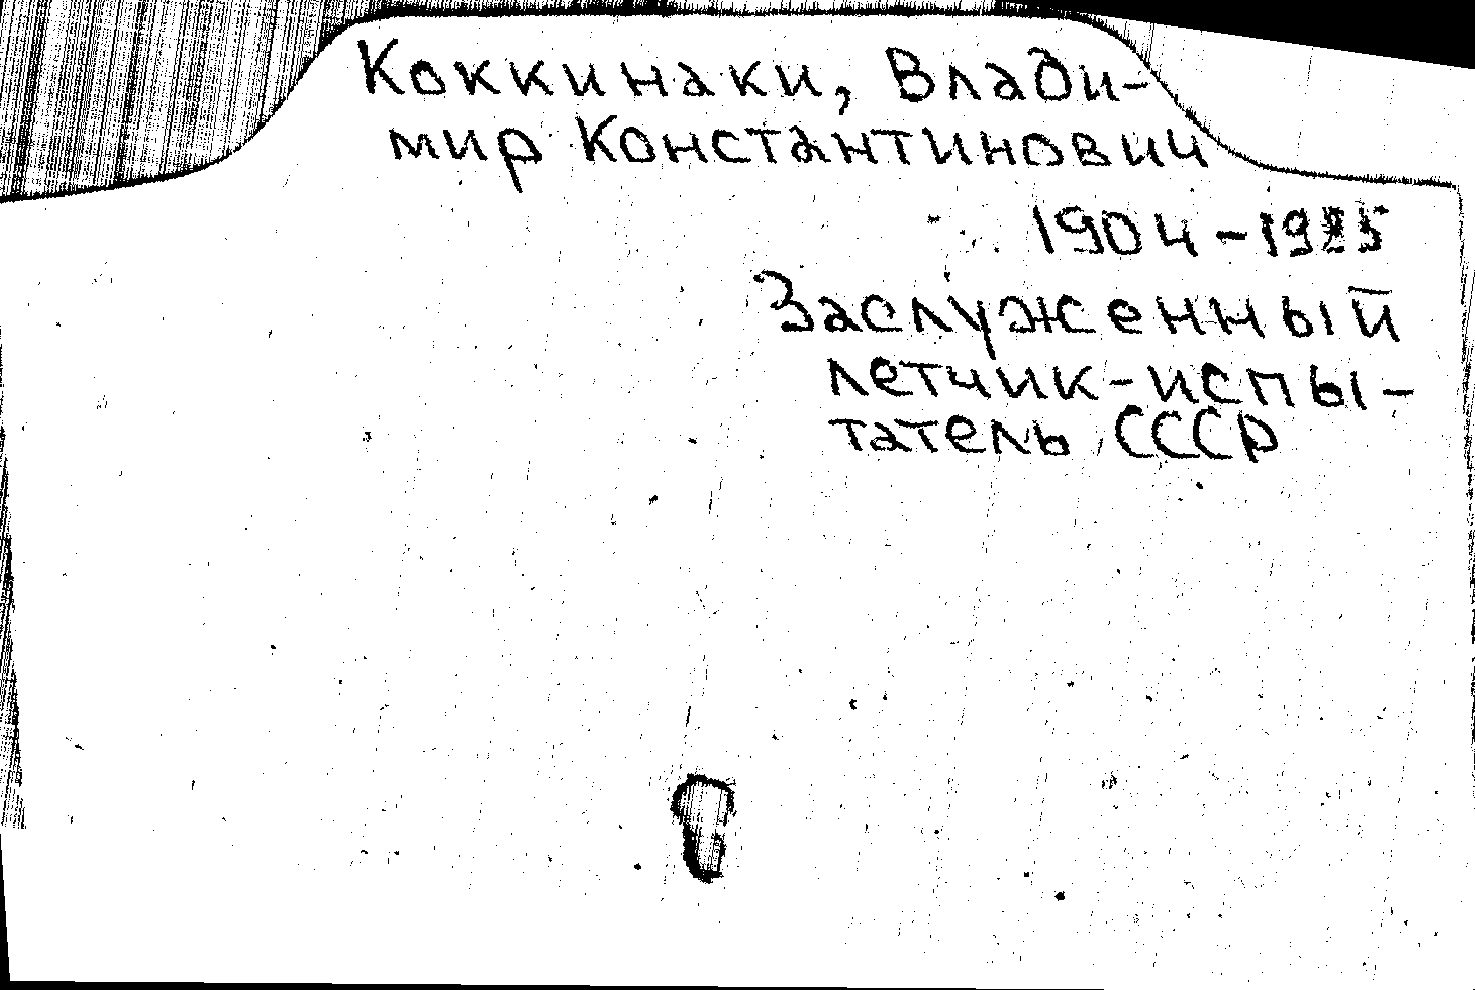 Коккинаки, Влади-
мир Константинович
1904-1985
Заслуженный
летчик-испы-
татель СССР